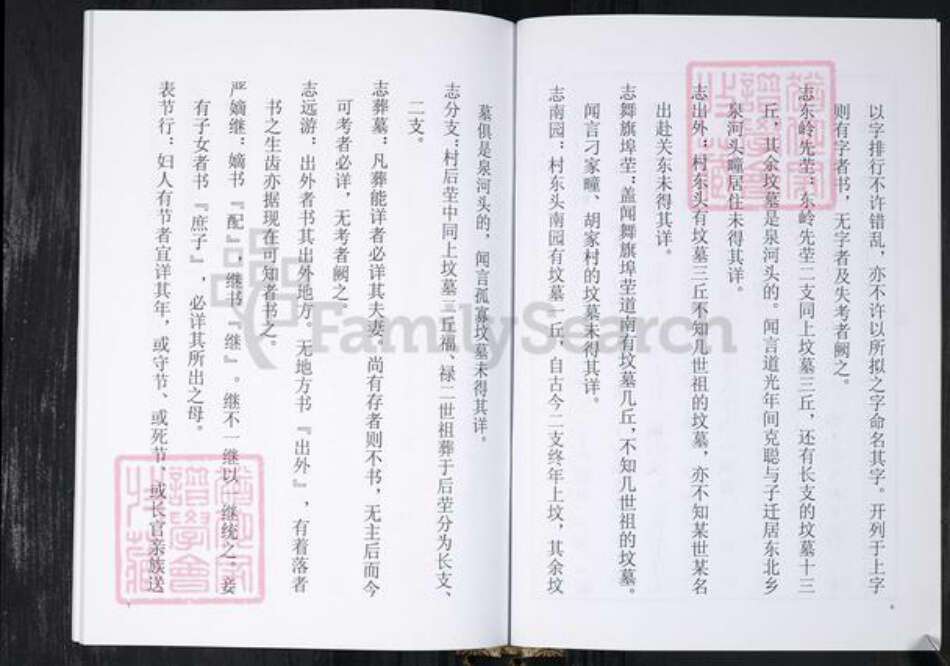 以字排行不许错乱，亦不许以所拟之字命名其字。开列于上字
则有字者书，无字者及失考者阙之。
志东岭先茔：东岭先茔二支同上坟墓三丘，还有长支的坟墓十三
丘，其余坟墓是泉河头的。闻言道光年间克聪与子迁居东北乡
泉河头疃居住未得其详。
志出外：村东头有坟墓三丘不知几世祖的坟墓，亦不知某世某名
出赴关东未得其详。
志舞旗埠茔：盖闻舞旗埠茔道南有坟墓几丘，不知几世祖的坟墓。
闻言刁家疃、胡家村的坟墓未得其详。
志南园：村东头南园有坟墓一丘，自古今二支终年上坟，其余坟
墓俱是泉河头的，闻言孤寡坟墓未得其详。
志分支：村后茔中同上坟墓三丘福、禄二世祖葬于后茔分为长支、
二支。
志葬墓：凡葬能详者必详其夫妻。尚有存者则不书，无主后而今
可考者必详，无考者阙之。
志远游：出外者书其出外地方。无地方书『出外』，有着落者
书之生齿亦据现在可知者书之。
严嫡继：嫡书『配』，继书『继』。继不一继以一继统之。妾
有子女者书『庶子』，必详其所出之母。
表节行：妇人有节者宜详其年，或守节、或死节、或长官亲族送
FamilySearch